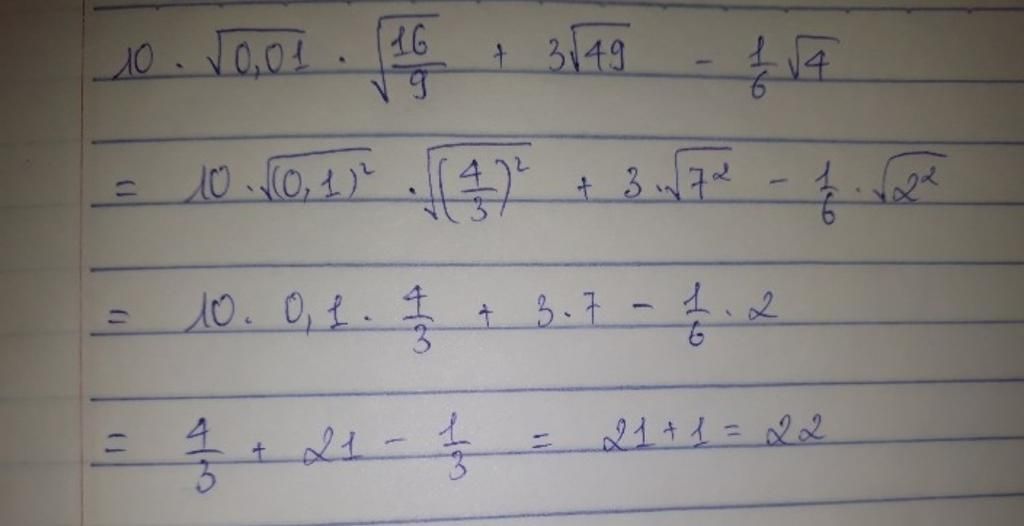 10 · √0,01 · √(16/9) + 3√49 - 1/6 √4
= 10 · √(0,1)² · √(4/3)² + 3 · √7² - 1/6 · √2²
= 10 · 0,1 · 4/3 + 3 · 7 - 1/6 · 2
= 4/3 + 21 - 1/3 = 21 + 1 = 22